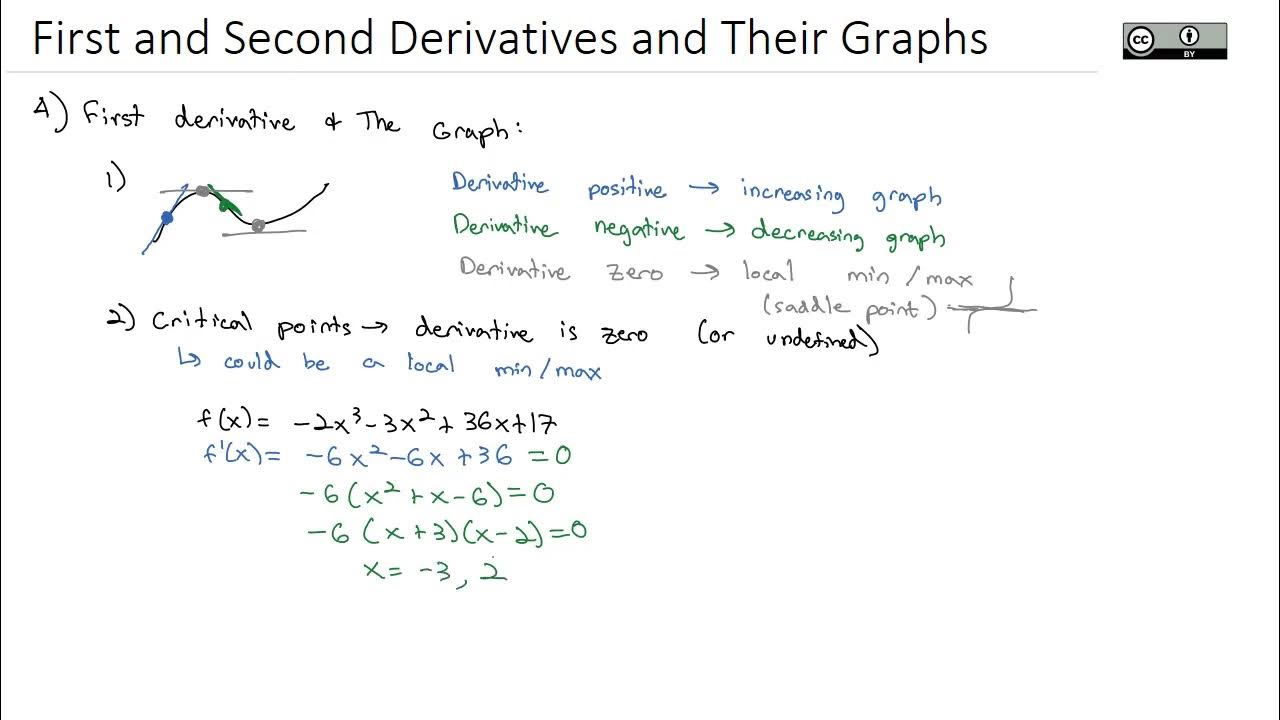 First and Second Derivatives and Their Graphs
cc BY
A) First derivative & The Graph:
1)
Derivative positive → increasing graph
Derivative negative → decreasing graph
Derivative zero → local min/max
(saddle point)
2) Critical points → derivative is zero (or undefined)
↳ could be a local min/max
f(x) = -2x³-3x²+36x+17
f'(x) = -6x²-6x+36 = 0
-6(x²+x-6)=0
-6(x+3)(x-2)=0
x= -3, 2